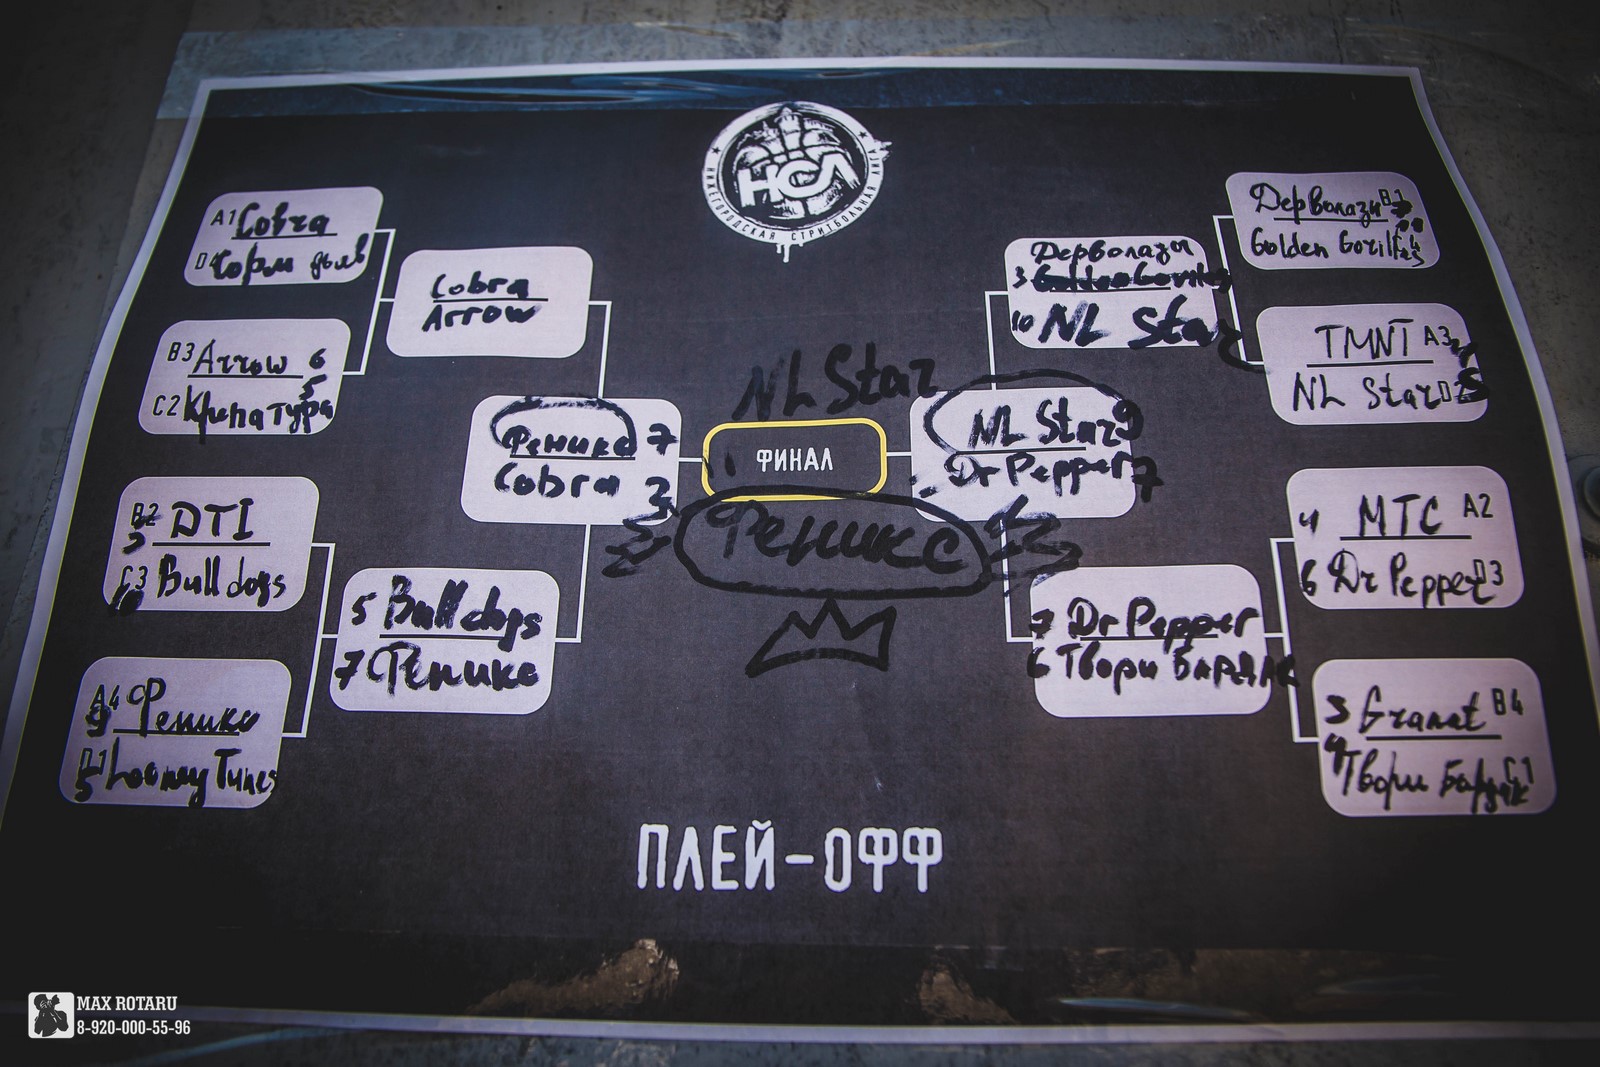 НСЛ
НИЖЕГОРОДСКАЯ СТРИТБОЛЬНАЯ ЛИГА
A1 Cobra
D4
B3 Arrow 6
C2 Кринатура 5
B2 DTI
C3 Bulldogs
A4 Феникс
D1 Looney Tunes
5
Cobra
Arrow
5 Bulldogs
7 Феникс
Феникс 7
Cobra 2
NL Star
ФИНАЛ
Феникс
NL Star 9
Dr Pepper 7
Дерволазы
3 Golden Gorillas
10 NL Star
7 Dr Pepper
6 Твори Бардак
Дерволазы
Golden Gorillas
TMNT A3
NL Star D2 5
4 МТС A2
6 Dr Pepper D3
3 Granat B4
4 Твори Бардак C1
ПЛЕЙ-ОФФ
MAX ROTARU
8-920-000-55-96